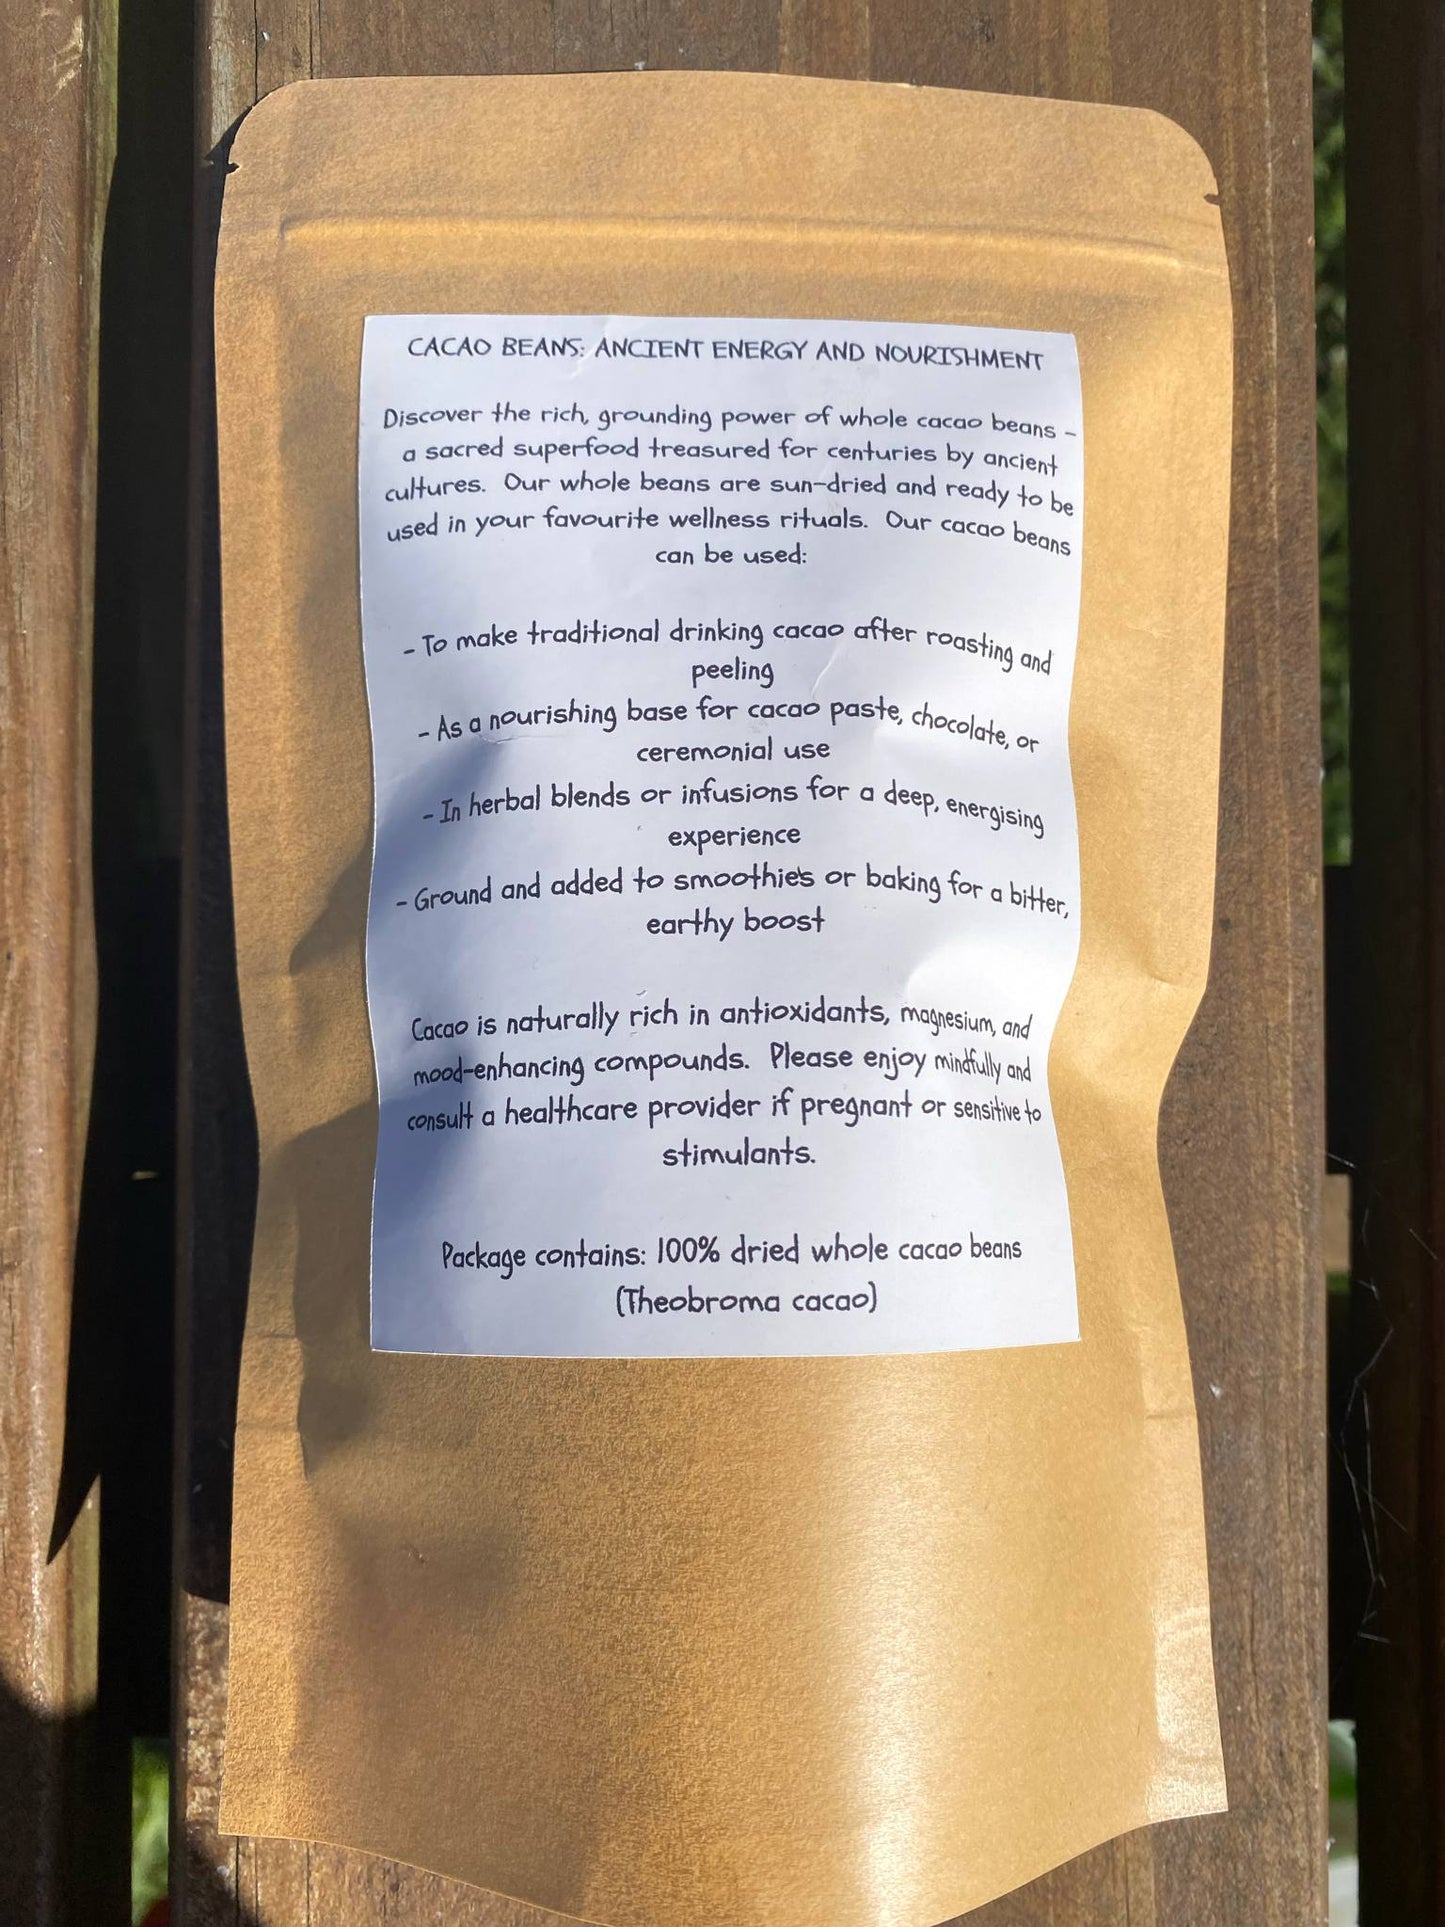 CACAO BEANS: ANCIENT ENERGY AND NOURISHMENT
Discover the rich, grounding power of whole cacao beans –
a sacred superfood treasured for centuries by ancient
cultures. Our whole beans are sun-dried and ready to be
used in your favourite wellness rituals. Our cacao beans
can be used:
- To make traditional drinking cacao after roasting and
peeling
- As a nourishing base for cacao paste, chocolate, or
ceremonial use
- In herbal blends or infusions for a deep, energising
experience
- Ground and added to smoothies or baking for a bitter,
earthy boost
Cacao is naturally rich in antioxidants, magnesium, and
mood-enhancing compounds. Please enjoy mindfully and
consult a healthcare provider if pregnant or sensitive to
stimulants.
Package contains: 100% dried whole cacao beans
(Theobroma cacao)